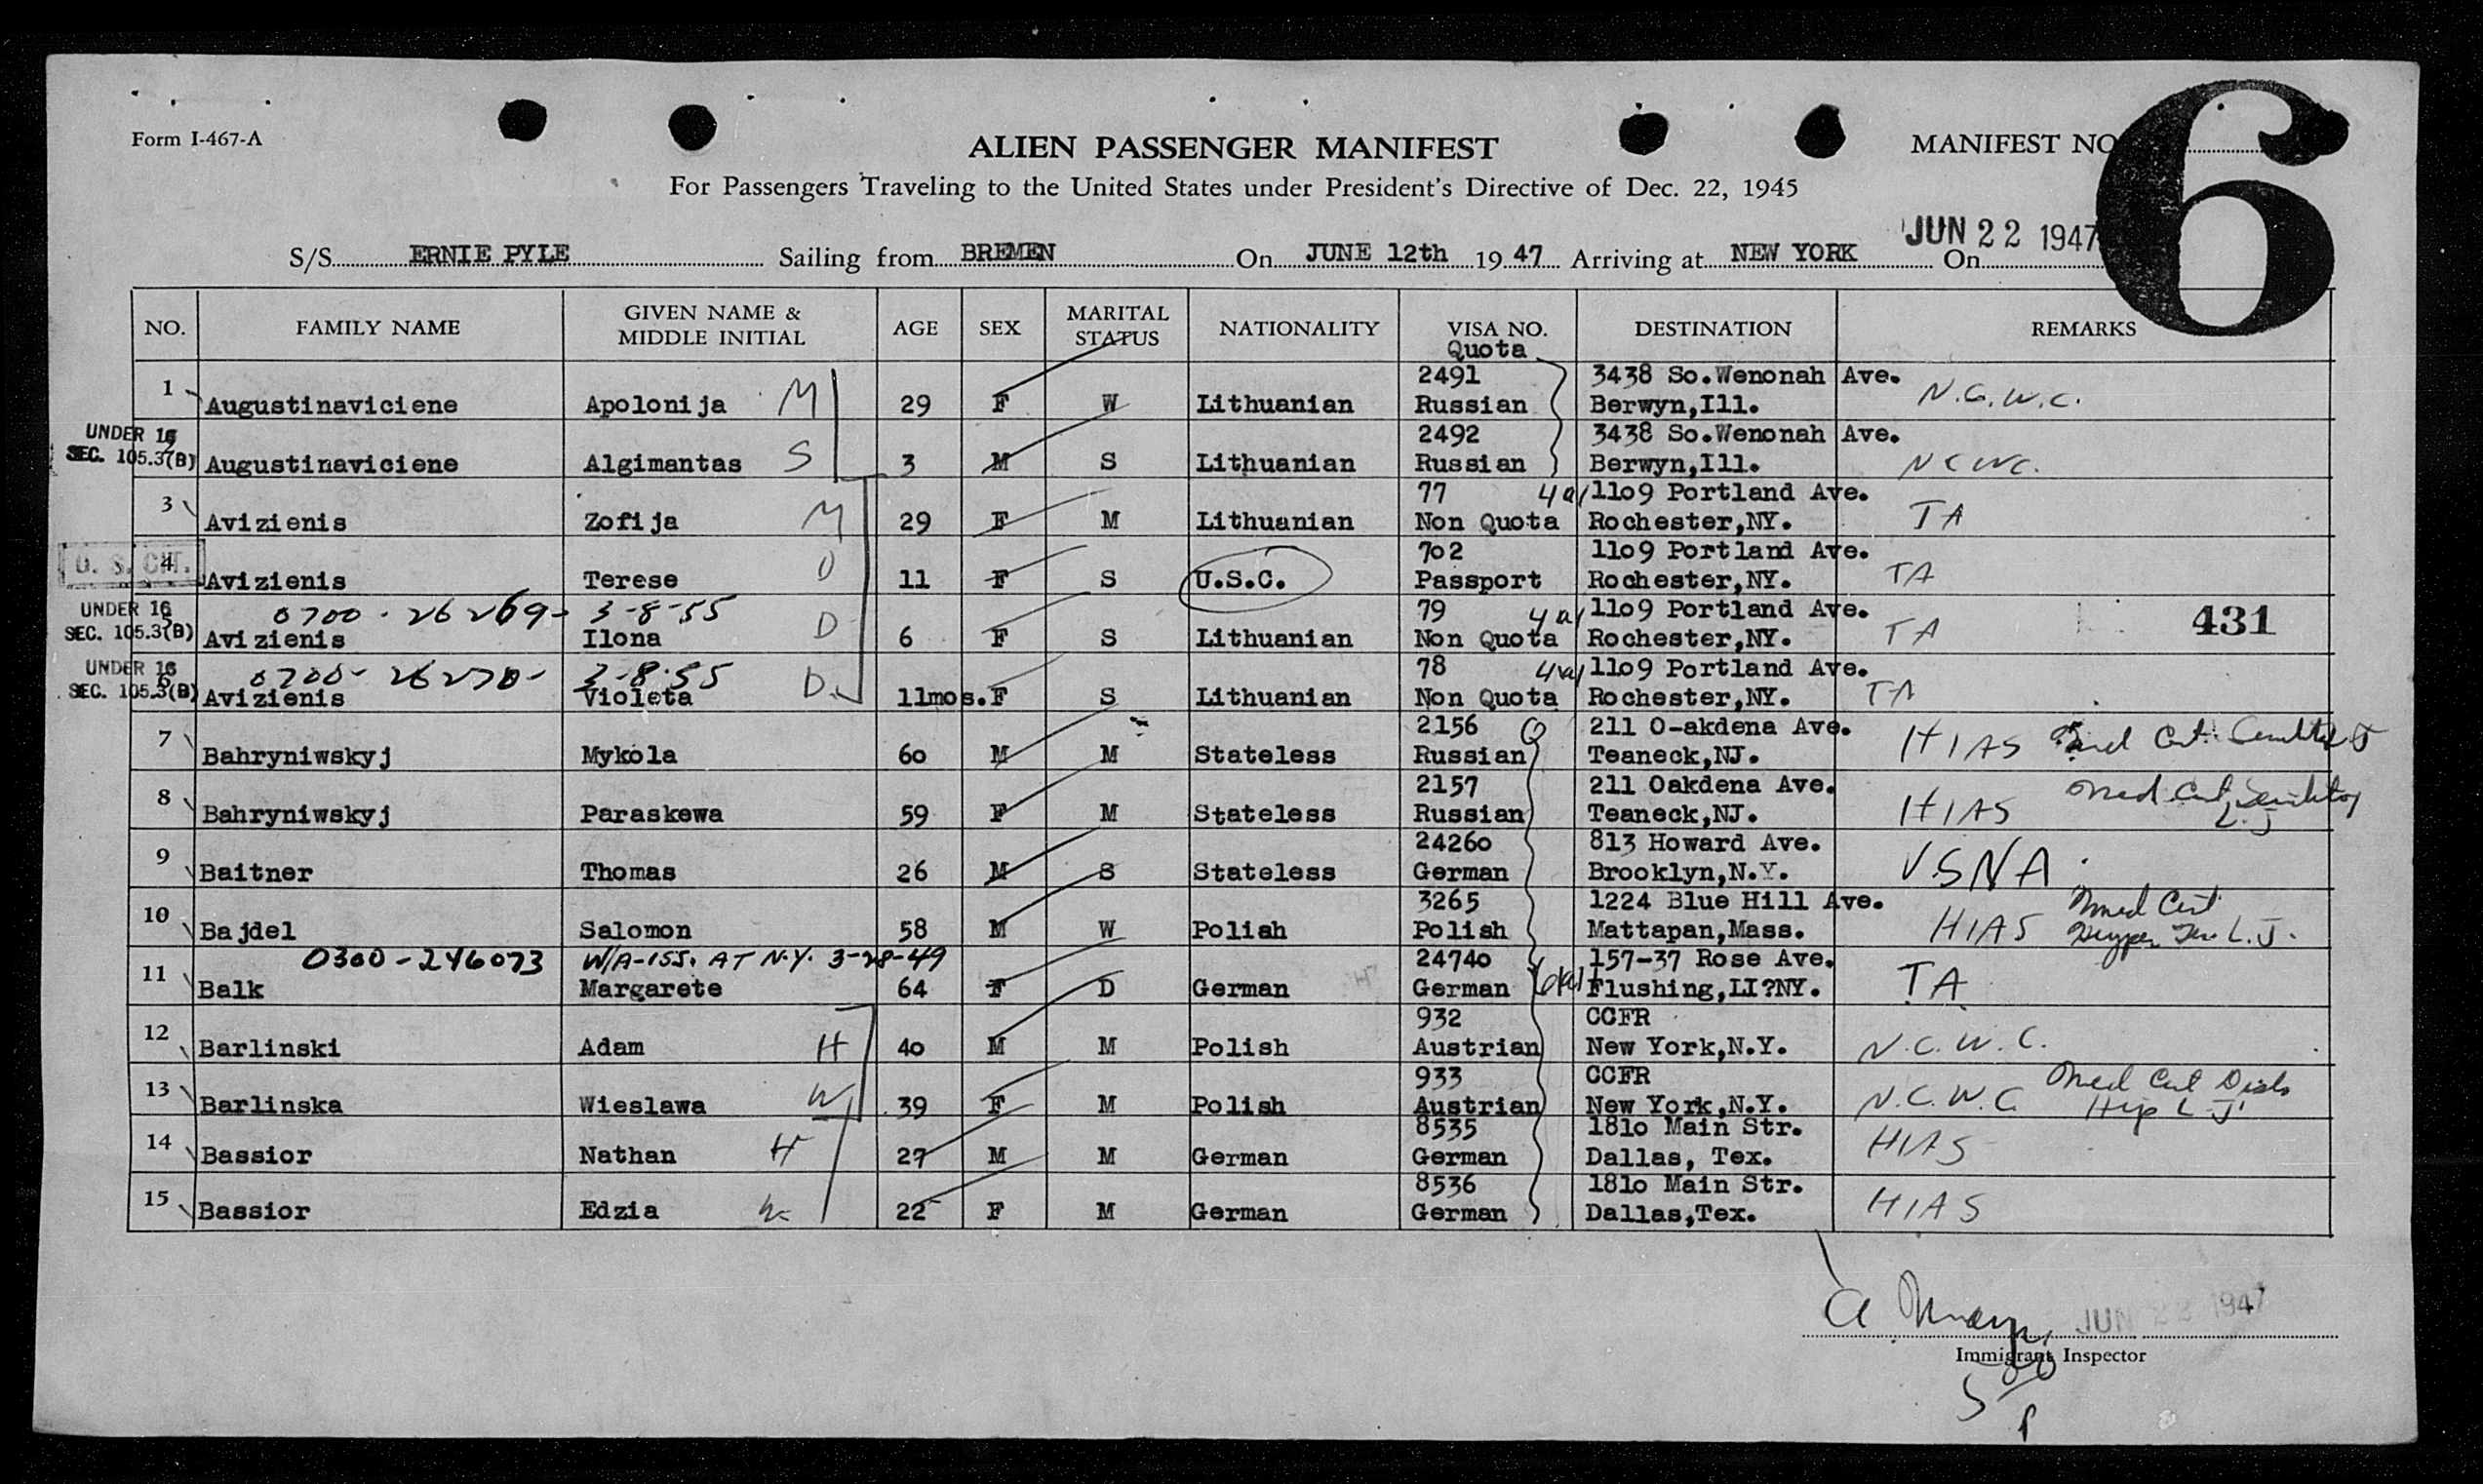 Form I-467-A
ALIEN PASSENGER MANIFEST
MANIFEST NO
6
For Passengers Traveling to the United States under President's Directive of Dec. 22, 1945
S/S ERNIE PYLE Sailing from BREMEN On JUNE 12th 19 47 Arriving at NEW YORK On JUN 22 1947
NO. FAMILY NAME GIVEN NAME & MIDDLE INITIAL AGE SEX MARITAL STATUS NATIONALITY VISA NO. DESTINATION REMARKS
Quota
2491 3438 So.Wenonah Ave.
1 Augustinaviciene Apolonija M 29 F W Lithuanian Russian Berwyn,Ill. N.C.W.C.
UNDER 16 2492 3438 So.Wenonah Ave.
SEC. 105.3(B) Augustinaviciene Algimantas S 3 M S Lithuanian Russian Berwyn,Ill. NCWC.
77 4a/ 11o9 Portland Ave.
3 Avizienis Zofija M 29 F M Lithuanian Non Quota Rochester,NY. TA
U. S. CIT. 7o2 11o9 Portland Ave.
4 Avizienis Terese D 11 F S U.S.C. Passport Rochester,NY. TA
UNDER 16 0700-26269- 3-8-55 79 4a/ 11o9 Portland Ave.
SEC. 105.3(B) Avizienis Ilona D 6 F S Lithuanian Non Quota Rochester,NY. TA 431
UNDER 16 0700-26270- 3-8-55 78 4a/ 11o9 Portland Ave.
SEC. 105.3(B) Avizienis Violeta D 11mos. F S Lithuanian Non Quota Rochester,NY. TA
2156 Q 211 O-akdena Ave.
7 Bahryniwskyj Mykola 60 M M Stateless Russian Teaneck,NJ. HIAS Med Cert. L.J
2157 211 Oakdena Ave.
8 Bahryniwskyj Paraskewa 59 F M Stateless Russian Teaneck,NJ. HIAS Med Cert. Senility L.J
2426o 813 Howard Ave.
9 Baitner Thomas 26 M S Stateless German Brooklyn,N.Y. VSNA
3265 1224 Blue Hill Ave.
10 Bajdel Salomon 58 M W Polish Polish Mattapan,Mass. HIAS Med Cert Hyper Ten L.J.
0300-246073 W/A-155. AT N.Y. 3-28-49 2474o 157-37 Rose Ave.
11 Balk Margarete 64 F D German German Flushing,LI?NY. TA
932 CCFR
12 Barlinski Adam H 4o M M Polish Austrian New York,N.Y. N.C.W.C.
933 CCFR
13 Barlinska Wieslawa W 39 F M Polish Austrian New York,N.Y. N.C.W.C. Med Cert Disl. Hip L.J
8535 181o Main Str.
14 Bassior Nathan H 27 M M German German Dallas, Tex. HIAS
8536 181o Main Str.
15 Bassior Edzia W 22 F M German German Dallas,Tex. HIAS
JUN 22 1947
Immigrant Inspector